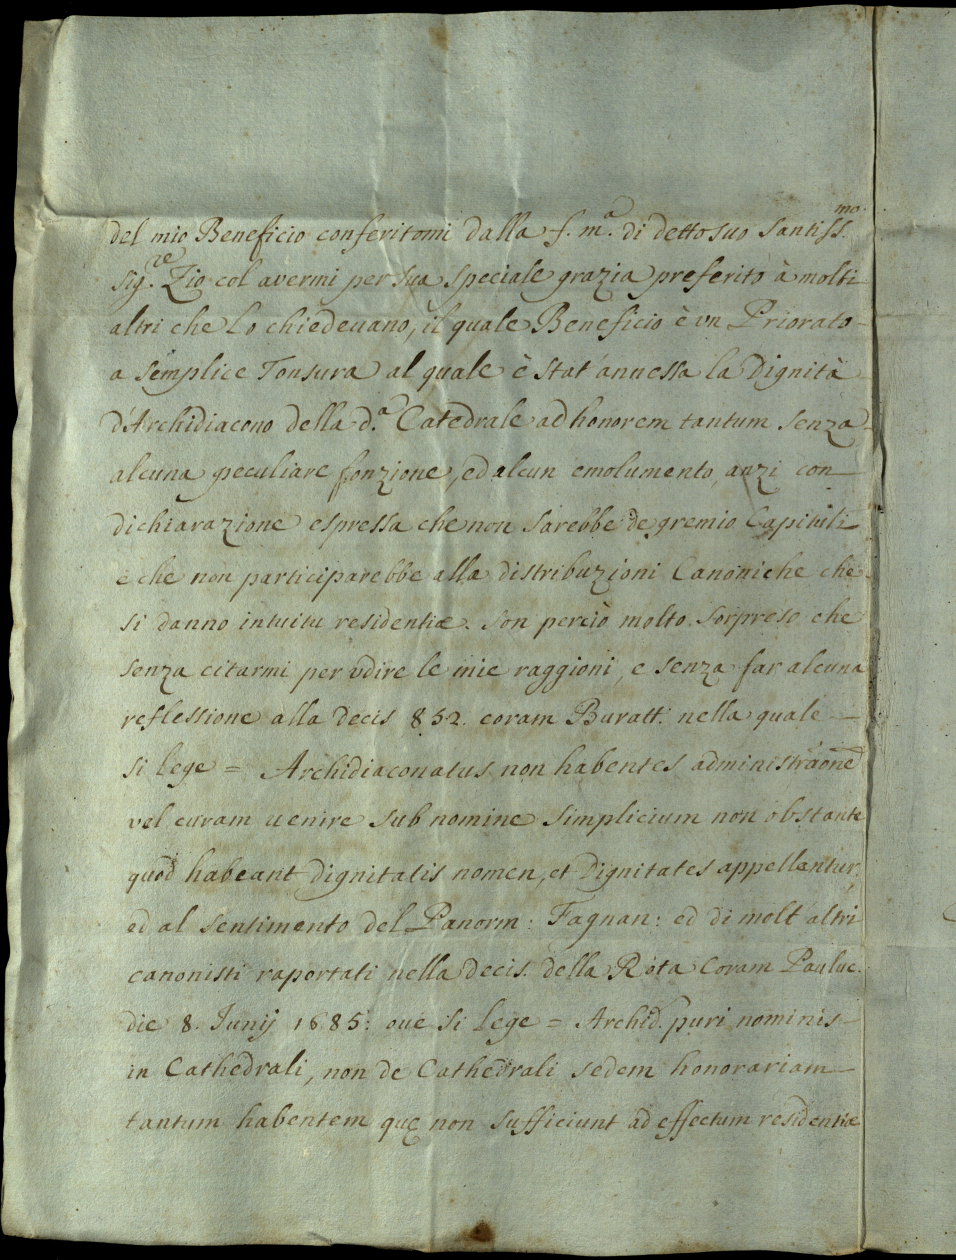 del mio Beneficio conferitomi dalla f. m.a di detto suo Santiss.mo
Sig.re Zio col avermi per sua speciale grazia preferito à molti
altri che lo chiedeuano, il quale Beneficio è vn Priorato
a semplice Tonsura al quale è stat' annessa la Dignità
d'Archidiacono della d.a Catedrale ad honorem tantum senza
alcuna peculiare fonzione, ed alcun emolumento, anzi con
dichiarazione espressa che non sarebbe de gremio Capituli
e che non participarebbe alla distribuzioni Canoniche che
si danno intuitu residentiæ. Son perciò molto sorpreso che
senza citarmi per vdire le mie raggioni, e senza far alcuna
reflessione alla decis 852. coram Buratt: nella quale
si lege = Archidiaconatus non habentes administraōne
vel curam uenire sub nomine simplicium non obstante
quod habeant dignitatis nomen, et Dignitates appellentur,
ed al sentimento del Panorm: Fagnan: ed di molt' altri
canonisti raportati nella decis. della Rota Coram Pauluc.
die 8. Junij 1685: oue si lege = Archid. puri nominis
in Cathedrali, non de Cathedrali sedem honorariam
tantum habentem quę non sufficiunt ad effectum residentiæ